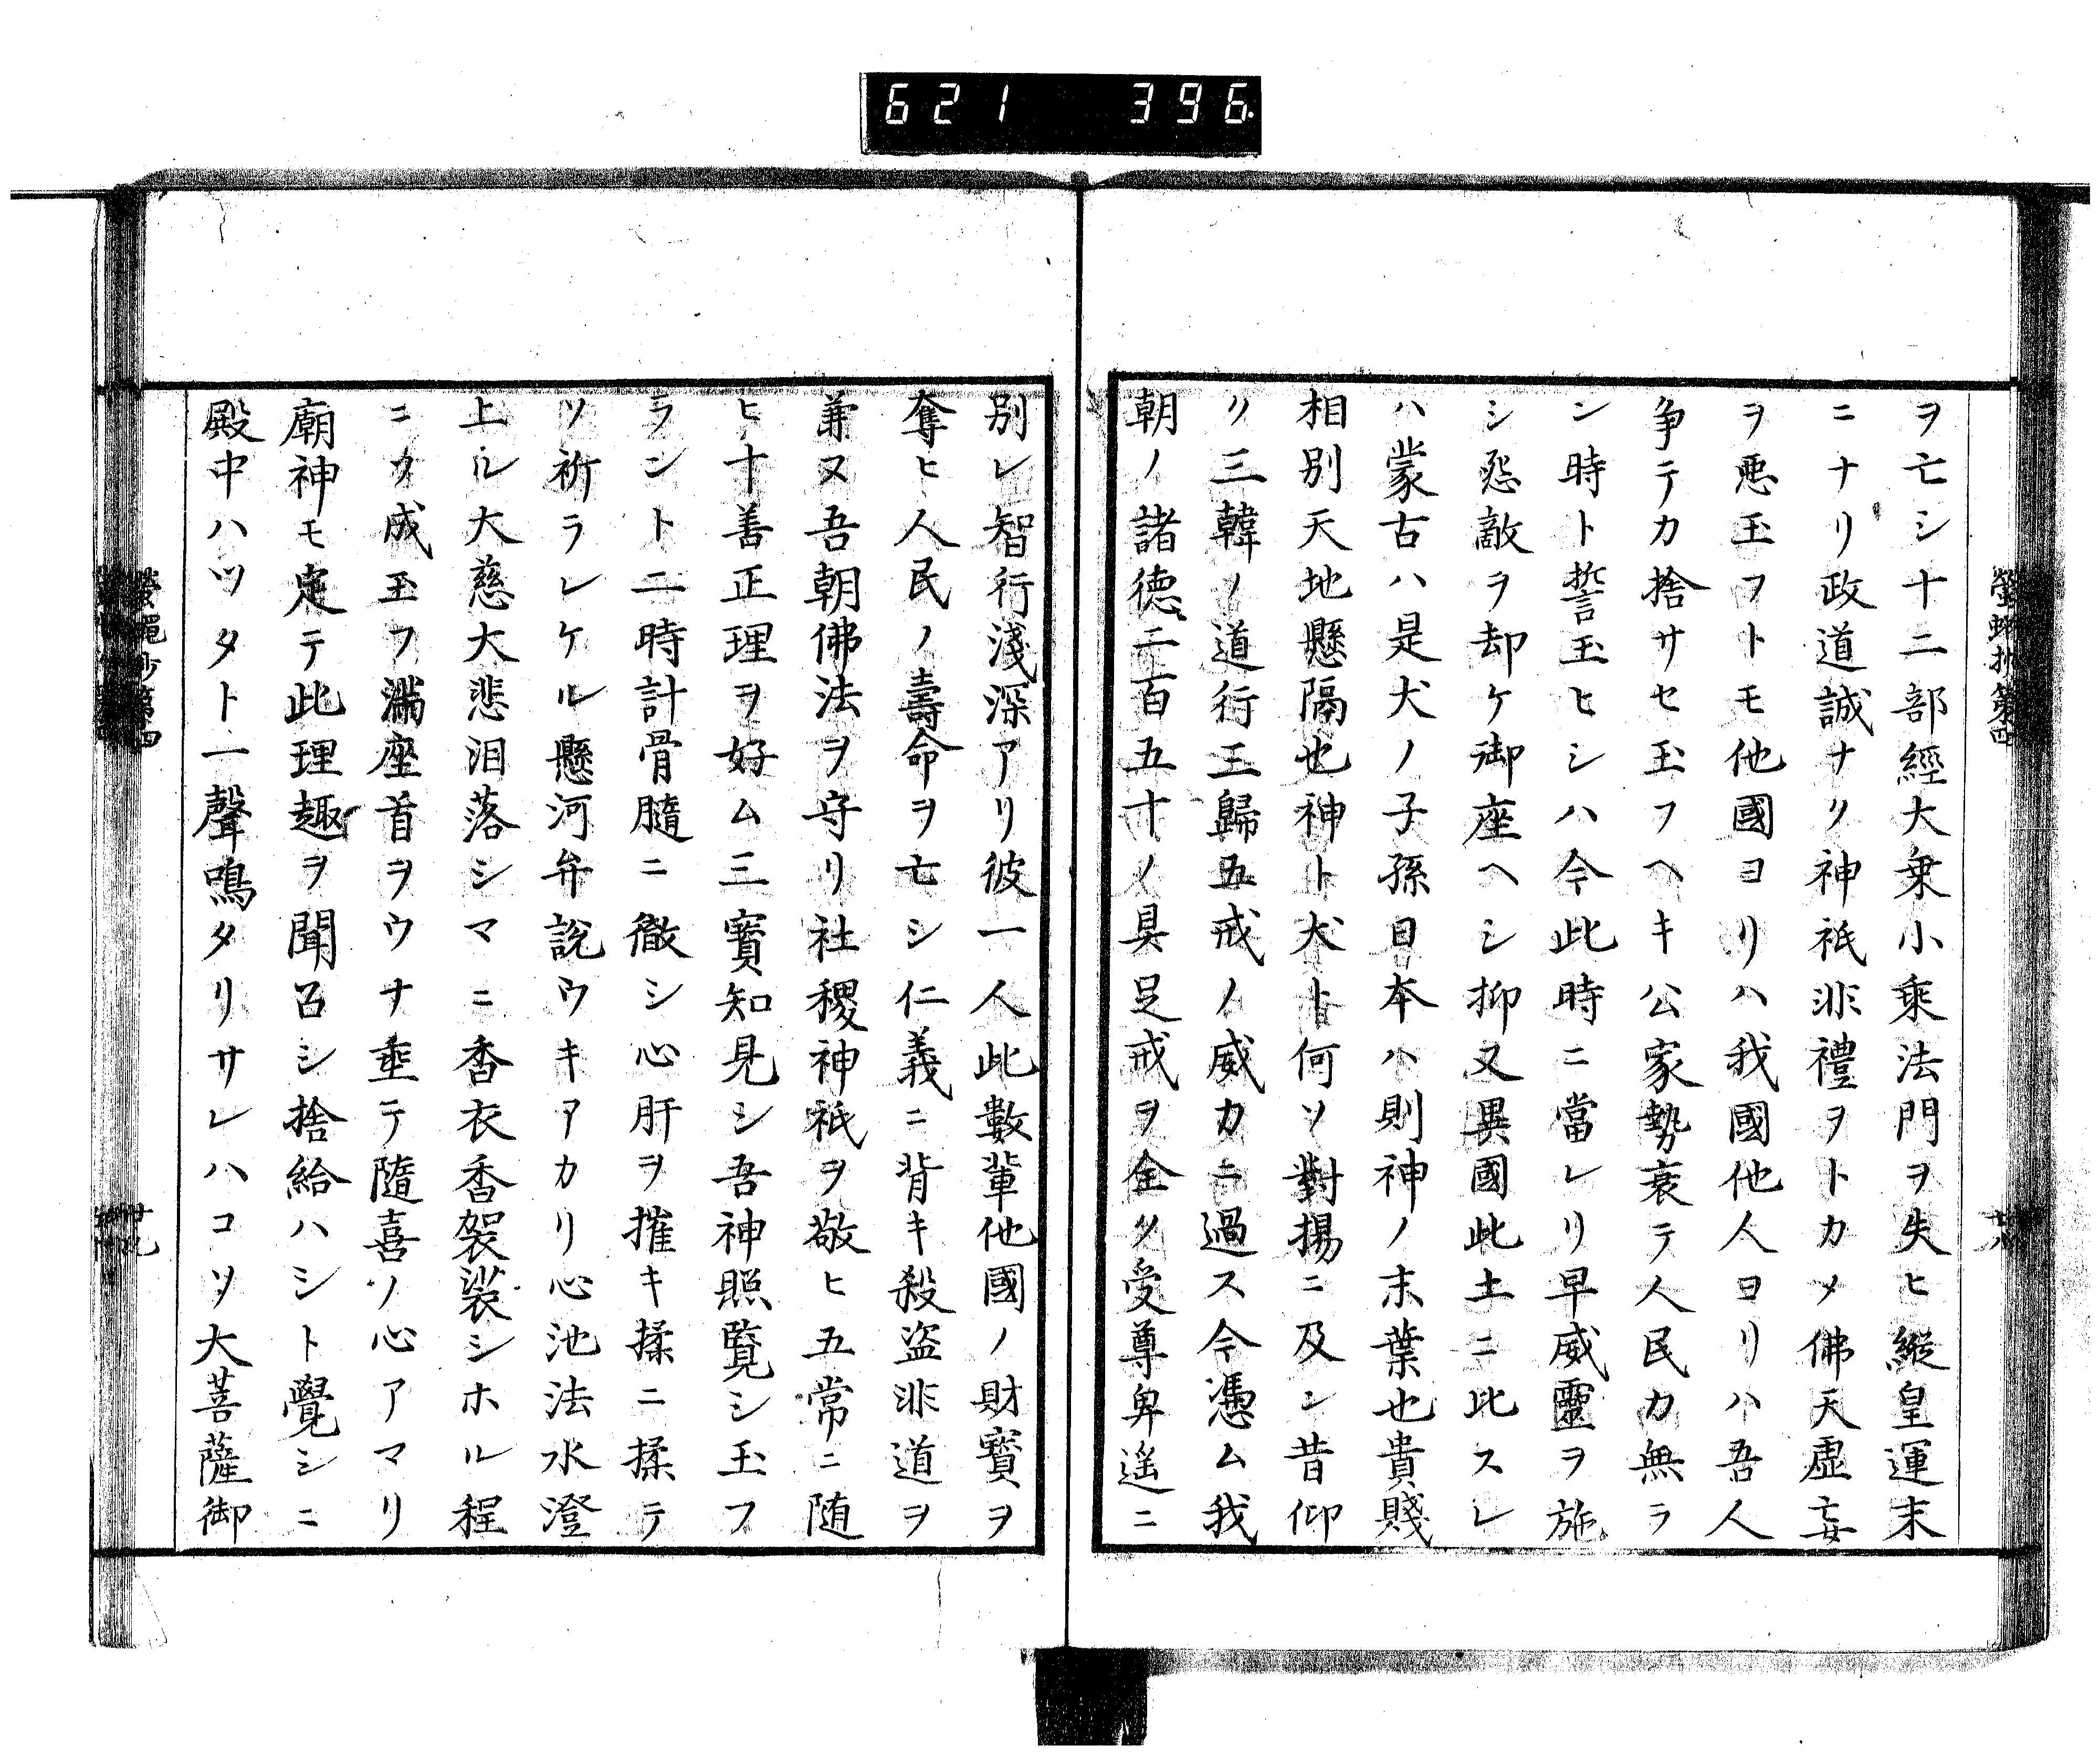 621 396
ヲ亡シ十二部經大乗小乗法門ヲ失ヒ縱皇運末
ニナリ政道誠ナク神祇非禮ヲトカメ佛天虚妄
ヲ悪玉フトモ他國ヨリハ我國他人ヨリハ吾人
争テカ捨サセ玉フヘキ公家勢衰テ人民力無ラ
ン時ト誓玉ヒシハ今此時ニ當レリ早威靈ヲ施
シ怨敵ヲ却ケ御座ヘシ抑又異國此土ニ比スレ
ハ蒙古ハ是犬ノ子孫日本ハ則神ノ末葉也貴賤
相別天地懸隔也神ト犬ト何ソ對揚ニ及シ昔仰
リ三韓ノ道行王歸五戒ノ威力ニ過ス今憑ム我
朝ノ諸德二百五十ノ具足戒ヲ全ク受尊卑遥ニ
別レ智行淺深アリ彼一人此數輩他國ノ財寳ヲ
奪ヒ人民ノ壽命ヲ亡シ仁義ニ背キ殺盗非道ヲ
兼又吾朝佛法ヲ守リ社稷神祇ヲ敬ヒ五常ニ随
ヒ十善正理ヲ好ム三寳知見シ吾神照覧シ玉フ
ラント二時計骨髓ニ徹シ心肝ヲ摧キ揉ニ揉テ
ソ祈ラレケル懸河弁説ウキアカリ心池法水澄
上ル大慈大悲泪落シマニ香衣香袈裟シホル程
ニク成玉フ滿座首ヲウナ垂テ隨喜ノ心アマリ
廟神モ定テ此理趣ヲ聞召シ捨給ハシト覺シニ
殿中ハツタト一聲鳴タリサレハコソ大菩薩御
蠅抄第四